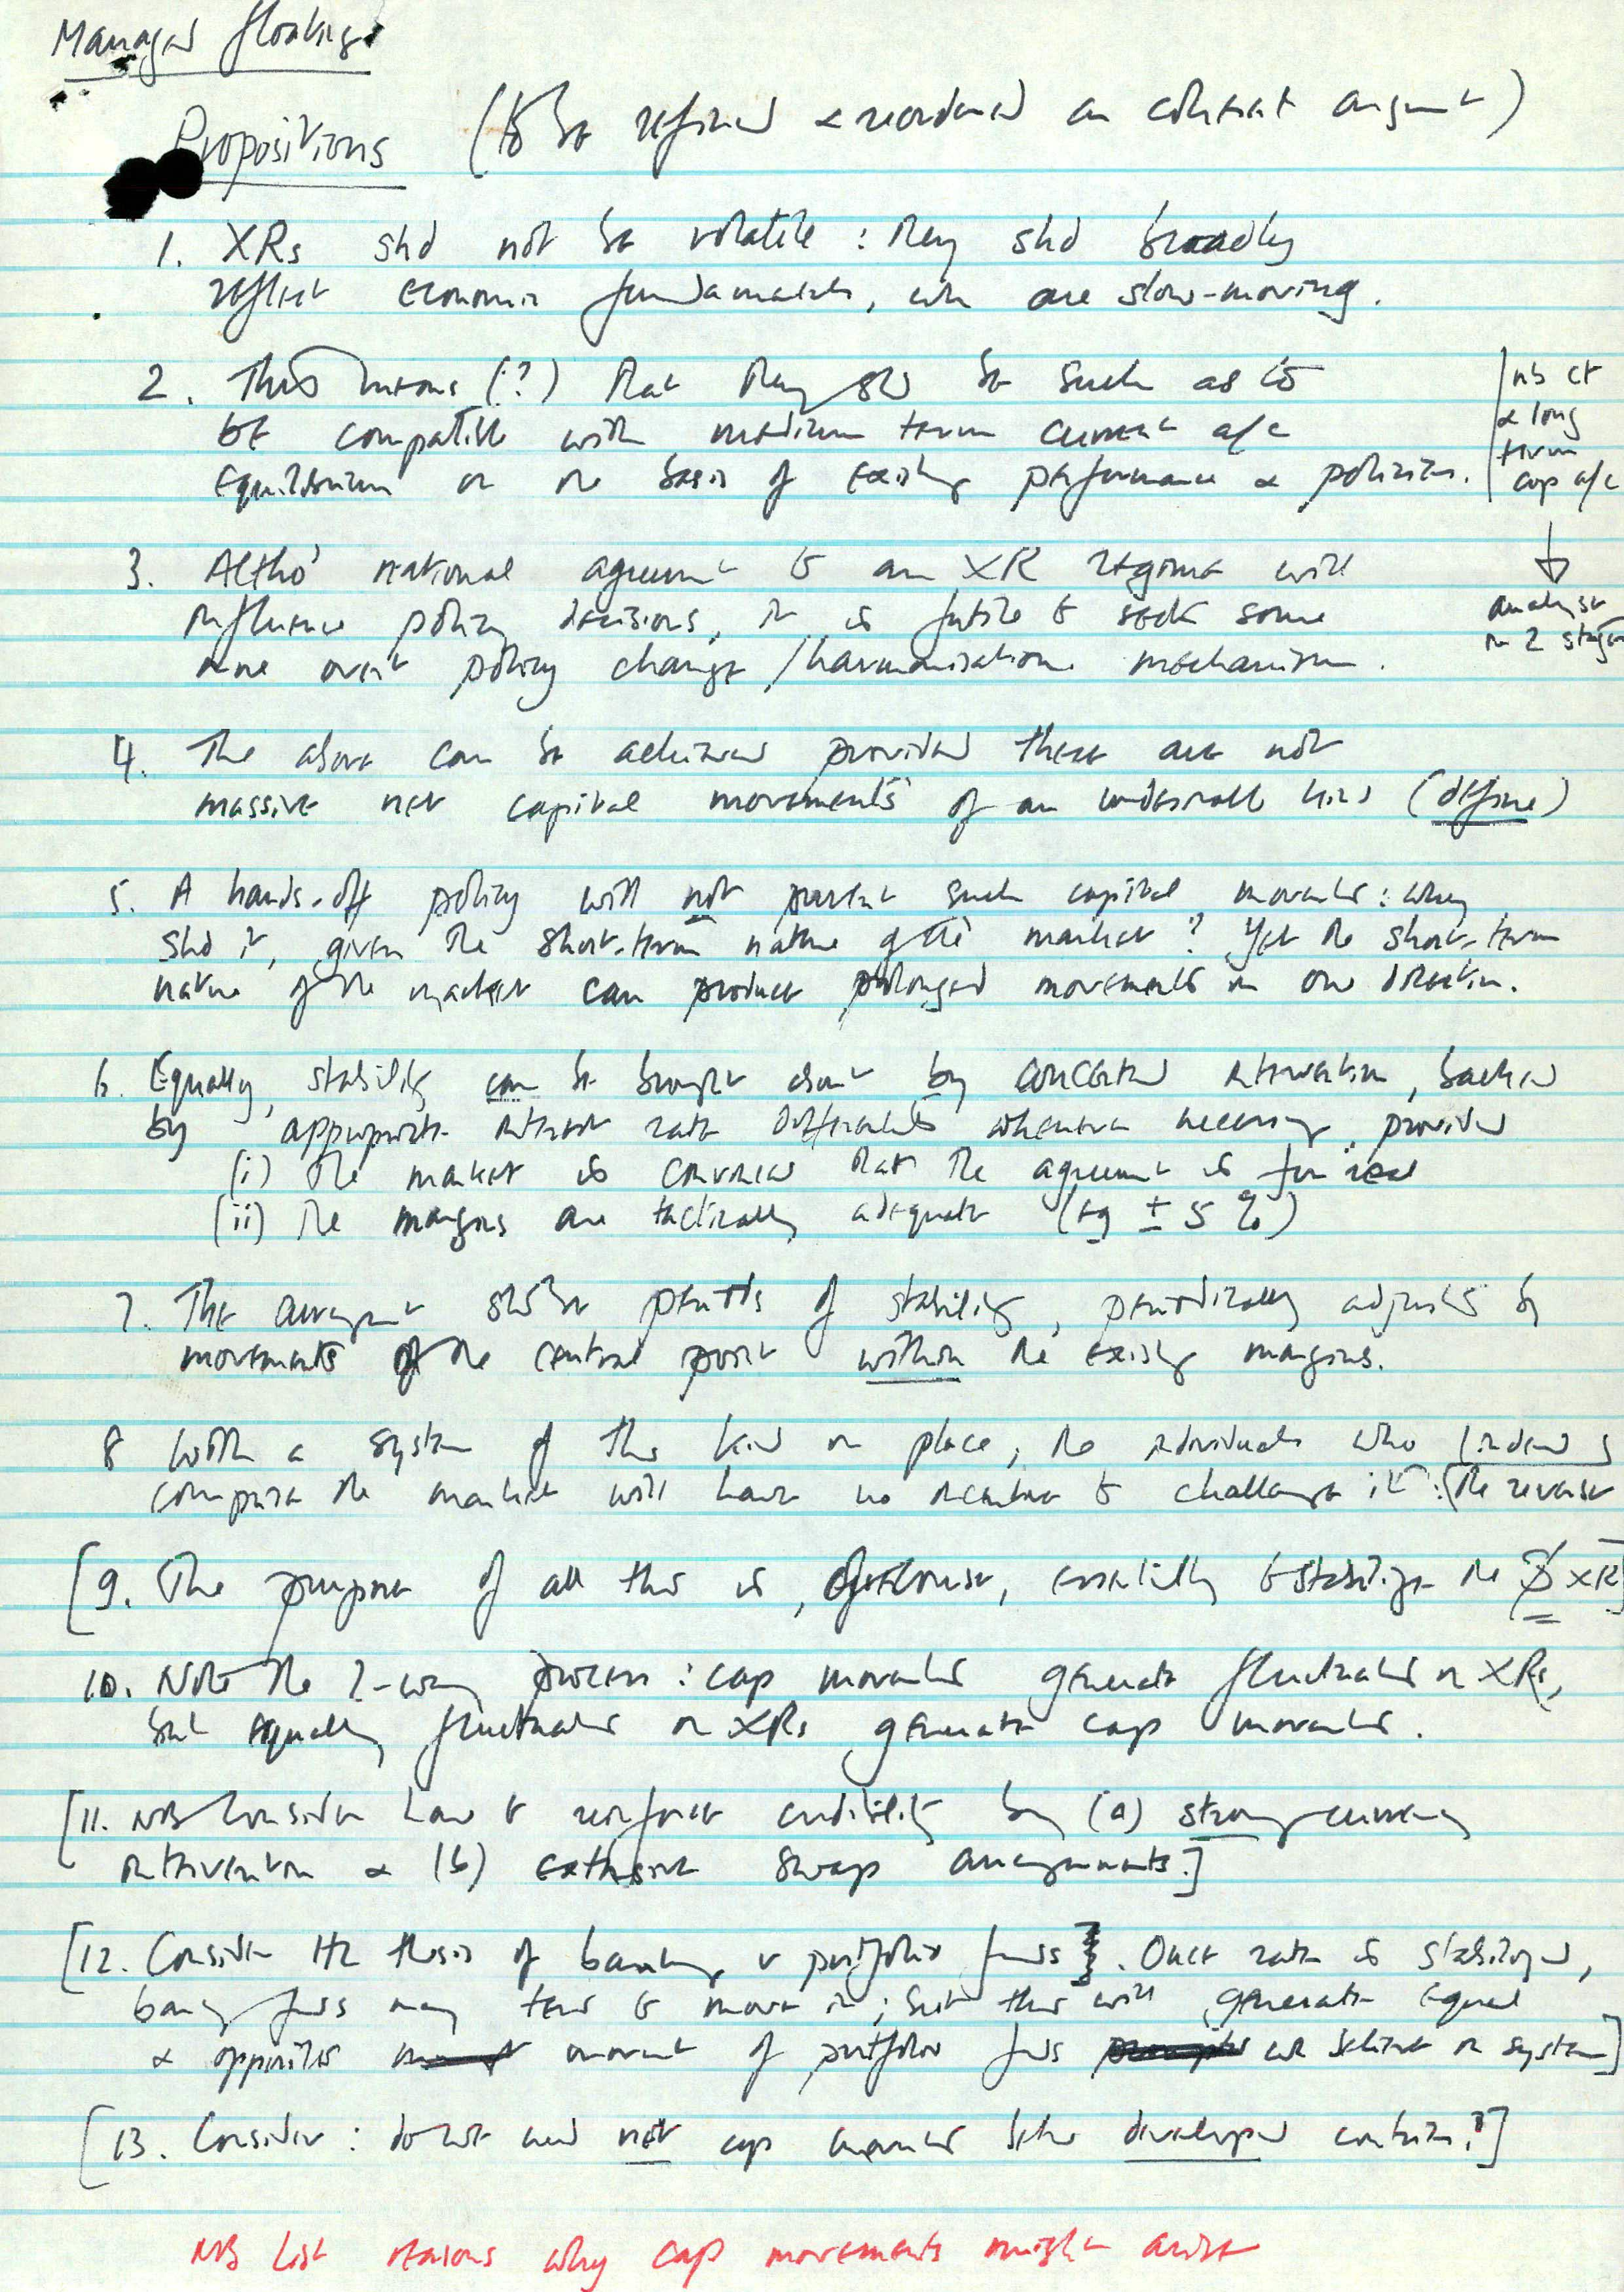 Managed floating
Propositions (to be refined & reordered as coherent argument)
1. XRs shd not be volatile : they shd broadly
reflect economic fundamentals, wh are slow-moving.
2. This means (?) that they shd be such as to
be compatible with medium term current a/c
equilibrium on the basis of existing performance & policies.
nb ct
& long
term
cap a/c
analyse
in 2 stages
3. Altho' national agreement to an XR regime will
influence policy decisions, it is futile to seek some
more overt policy change/harmonisation mechanism.
4. The above can be achieved provided there are not
massive net capital movements of an undesirable kind (define)
5. A hands-off policy will not prevent such capital movements : why
shd it, given the short-term nature of the market? Yet the short-term
nature of the market can produce prolonged movements in one direction.
6. Equally, stability can be brought about by concerted intervention, backed
by appropriate interest rate differentials whenever necessary, provided
(i) the market is convinced that the agreement is for real
(ii) the margins are tactically adequate (eg ± 5 %)
7. The arrangement shd be periods of stability, periodically adjusted by
movements of the central point within the existing margins.
8 With a system of this kind in place, the individuals who
comprise the market will have no incentive to challenge it : (the reverse
[9. The purpose of all this is, of course, essentially to stabilize the $ XR]
10. Note the 2-way process : cap movements generate fluctuations in XRs,
but equally fluctuations in XRs generate cap movements.
[11. NB Consider how to reinforce credibility by (a) strong-currency
intervention & (b) extensive swap arrangements.]
[12. Consider thesis of banking v portfolio funds. Once rate is stabilized,
banking funds may tend to move in; but this will generate equal
& opposite movement of portfolio funds wh believe in system]
[13. Consider : do we need net cap movements betw developed countries?]
NB List reasons why cap movements might arise